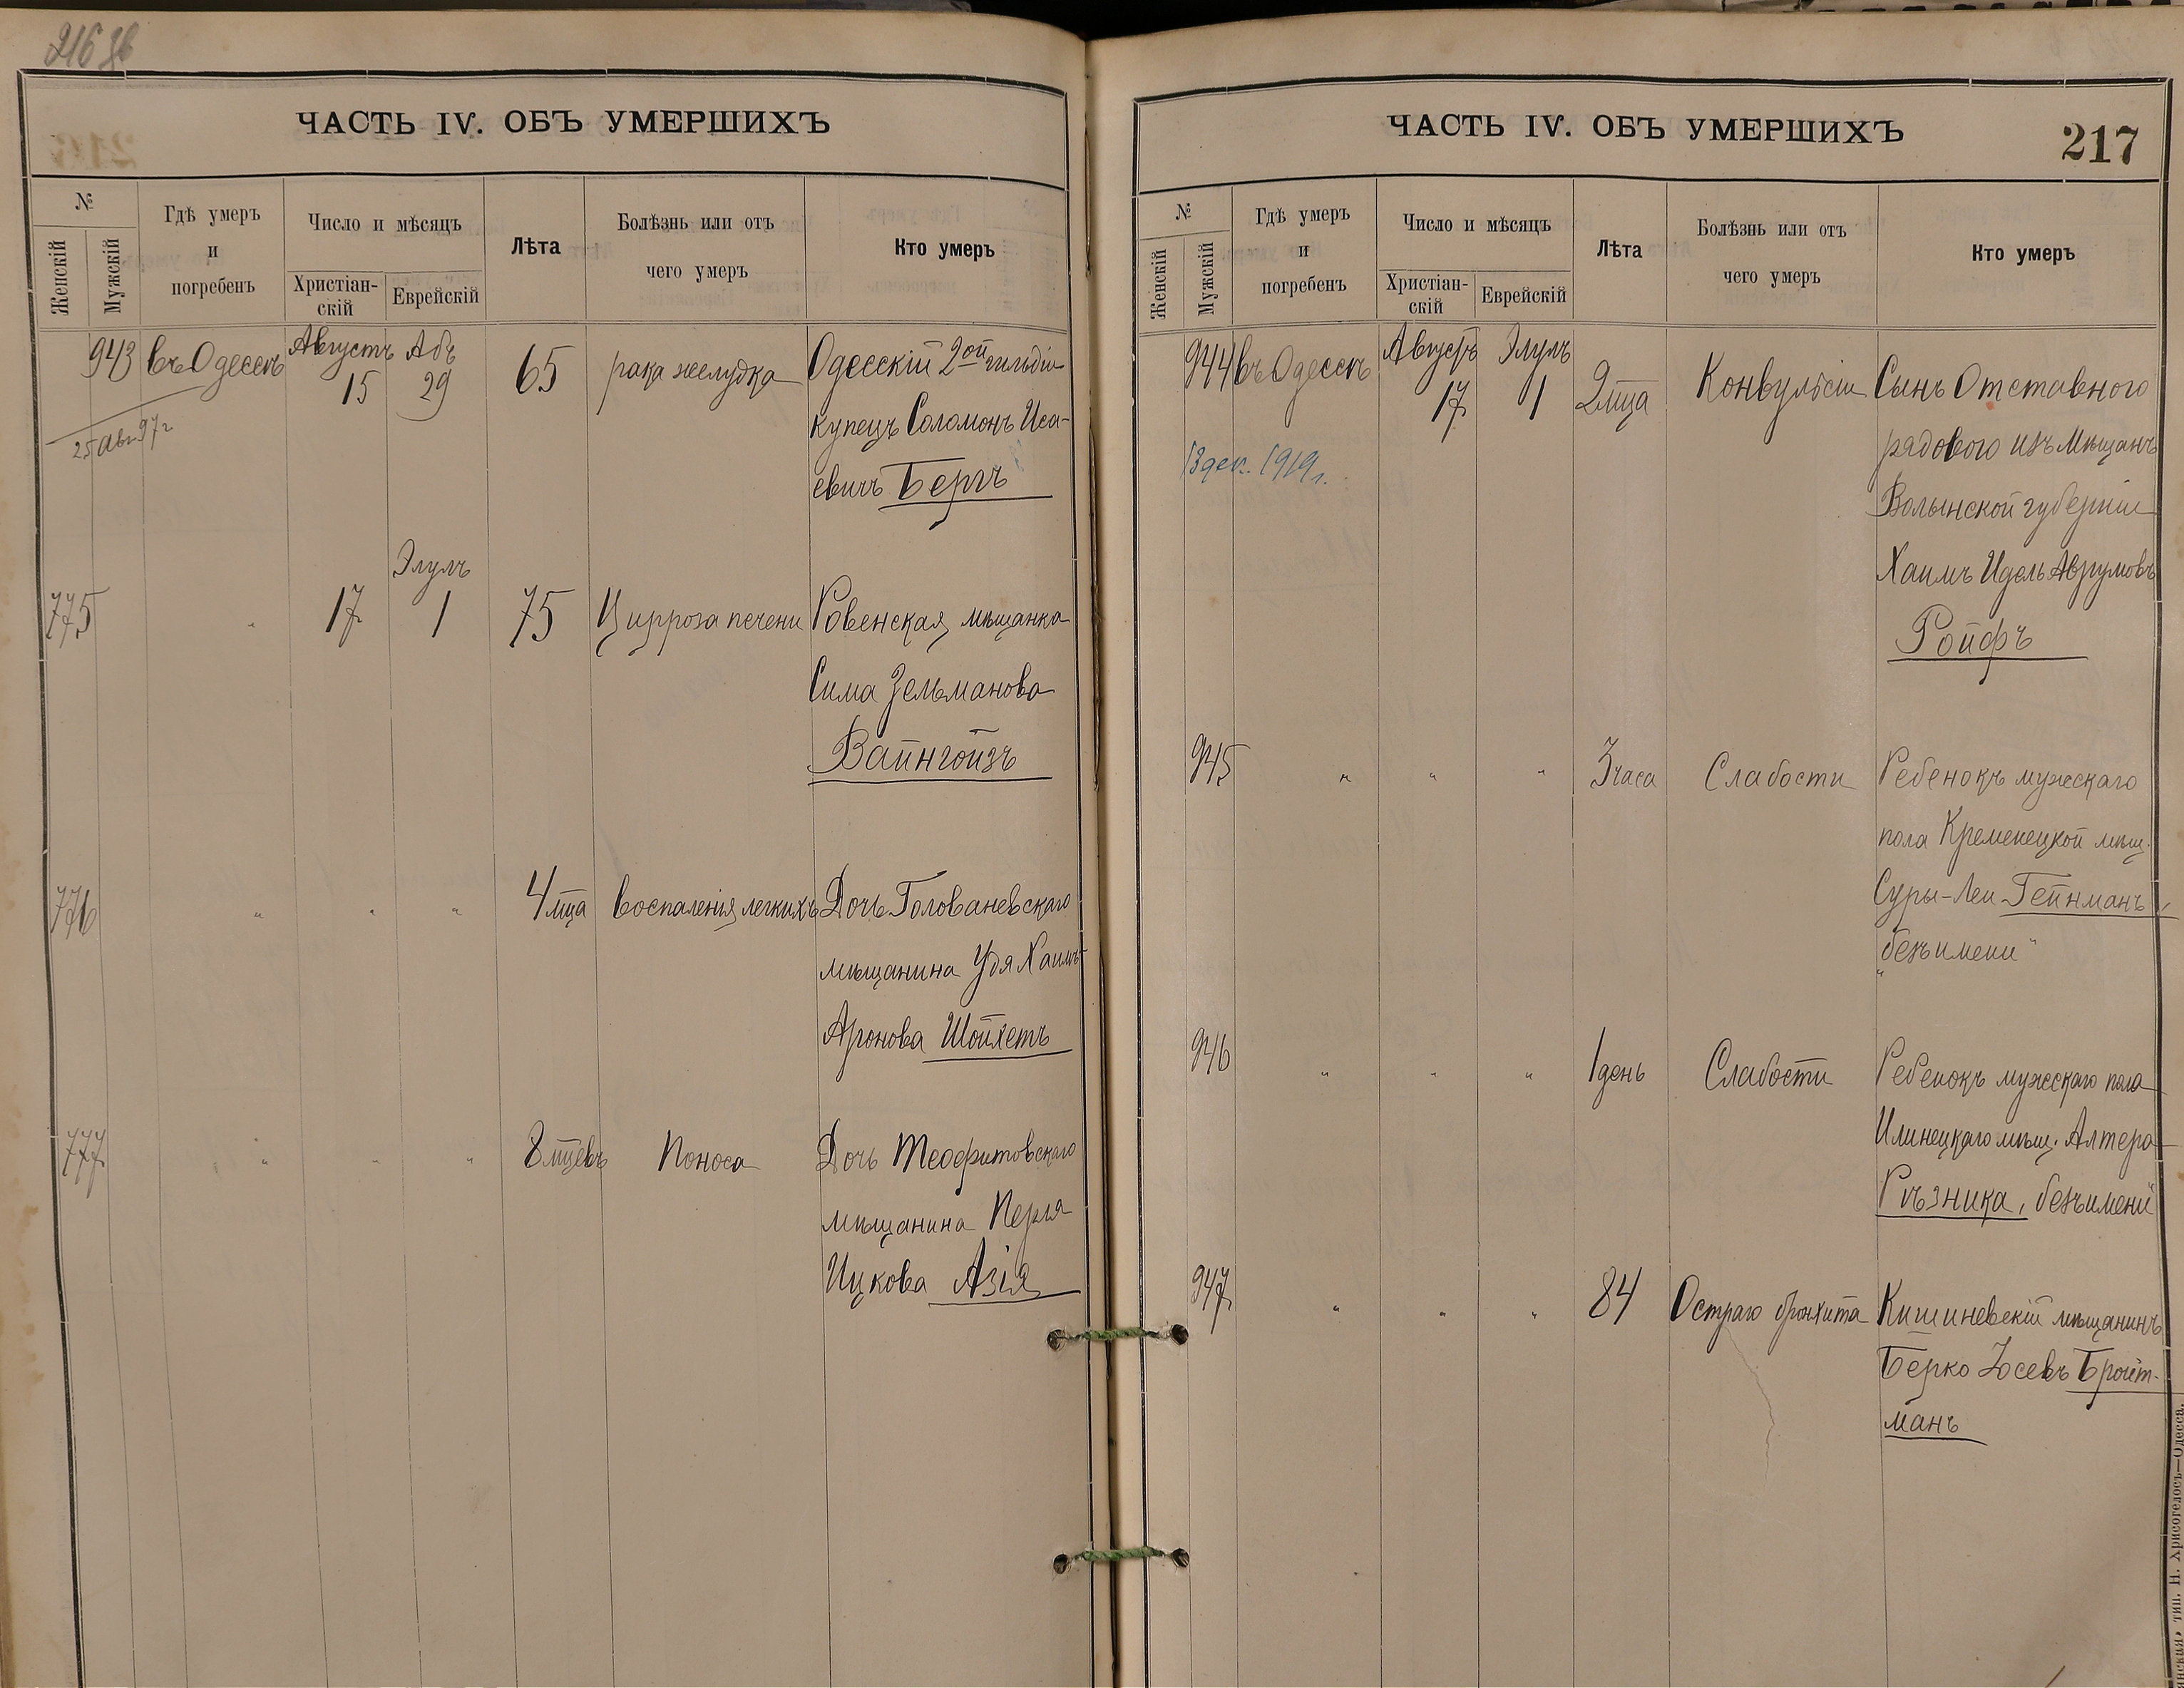 216 зв
ЧАСТЬ IV. ОБЪ УМЕРШИХЪ
№
Женскій
Мужскій
Гдѣ умеръ
и
погребенъ
Число и мѣсяцъ
Христіан-
скій
Еврейскій
Лѣта
Болѣзнь или отъ
чего умеръ
Кто умеръ
943 въ Одессѣ Августъ 15 Абъ 29 65 рака желудка Одесскій 2ой гильдіи
25 Авг. 97 г
купецъ Соломонъ Иса-
евичъ Бергъ
Элулъ
775 " 17 1 75 Цирроза печени Ровенская мѣщанка
Сима Зельманова
Вайнгойзъ
776 " " " 4 мца Воспаленія легкихъ Дочь Голованевскаго
мѣщанина Удя Хаимъ-
Аронова Шойхетъ
777 " " " 8 мцевъ Поноса Дочь Теофитовскаго
мѣщанина Перля
Ицкова Азія
ЧАСТЬ IV. ОБЪ УМЕРШИХЪ
217
№
Женскій
Мужскій
Гдѣ умеръ
и
погребенъ
Число и мѣсяцъ
Христіан-
скій
Еврейскій
Лѣта
Болѣзнь или отъ
чего умеръ
Кто умеръ
944 въ Одессѣ Августъ 17 Элулъ 1 2 мца Конвульсіи Сынъ Отставного
13 дек. 1919 г.
рядового изъ мѣщанъ
Волынской губерніи
Хаимъ Идель Аврумовъ
Ройфъ
945 " " " 3 часа Слабости Ребенокъ мужескаго
пола Кременецкой мѣщ.
Суры-Леи Гейнманъ,
"безъ имени"
946 " " " 1 день Слабости Ребенокъ мужескаго пола
Илинецкаго мѣщ. Алтера
Рѣзника, безъ имени
947 " " " 84 Остраго бронхита Кишиневскій мѣщанинъ
Берко Іосевъ Бройт-
манъ
тип. Н. Хрисогелосъ—Одесса.